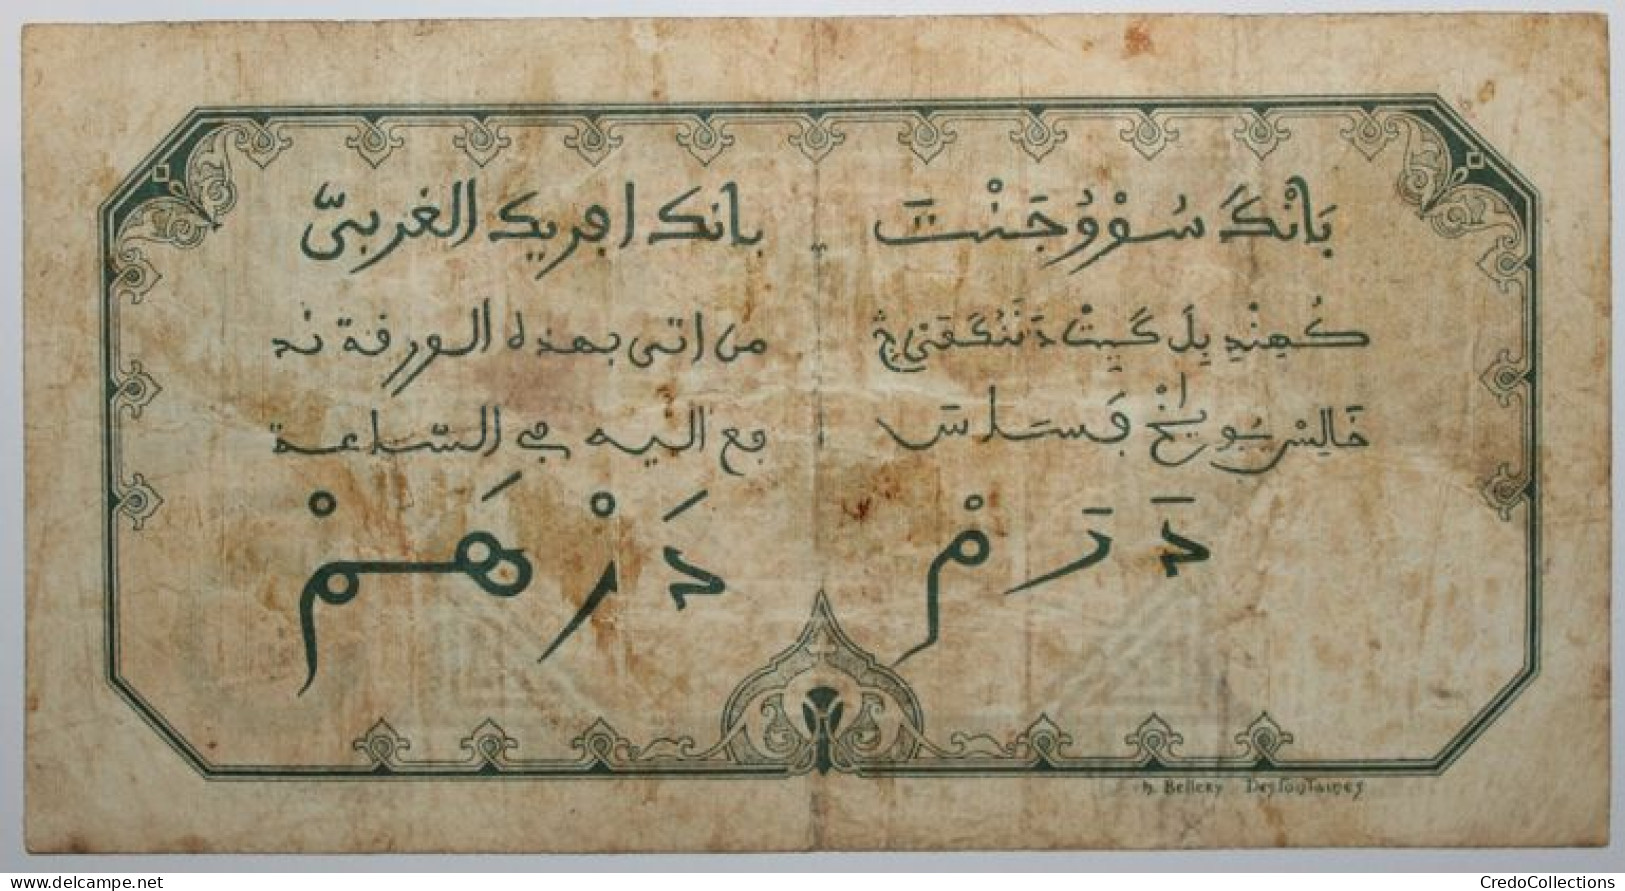 بَانْگَ سُوْوُجَنْتَ
كُهِنْدِ بِلَ گَيْتْ دَنَنْڪَفَيْ چِ
خَالِسْ يُو يَاخْ فَسَلَاسَ
دَرَمْ
بانك ابريك الغربىّ
من اتى بهذه الورقة ند
مع اليه في السّاعة
دَرْهَمْ
h. Bellery Desfontaines
delcampe.net
CredoCollections